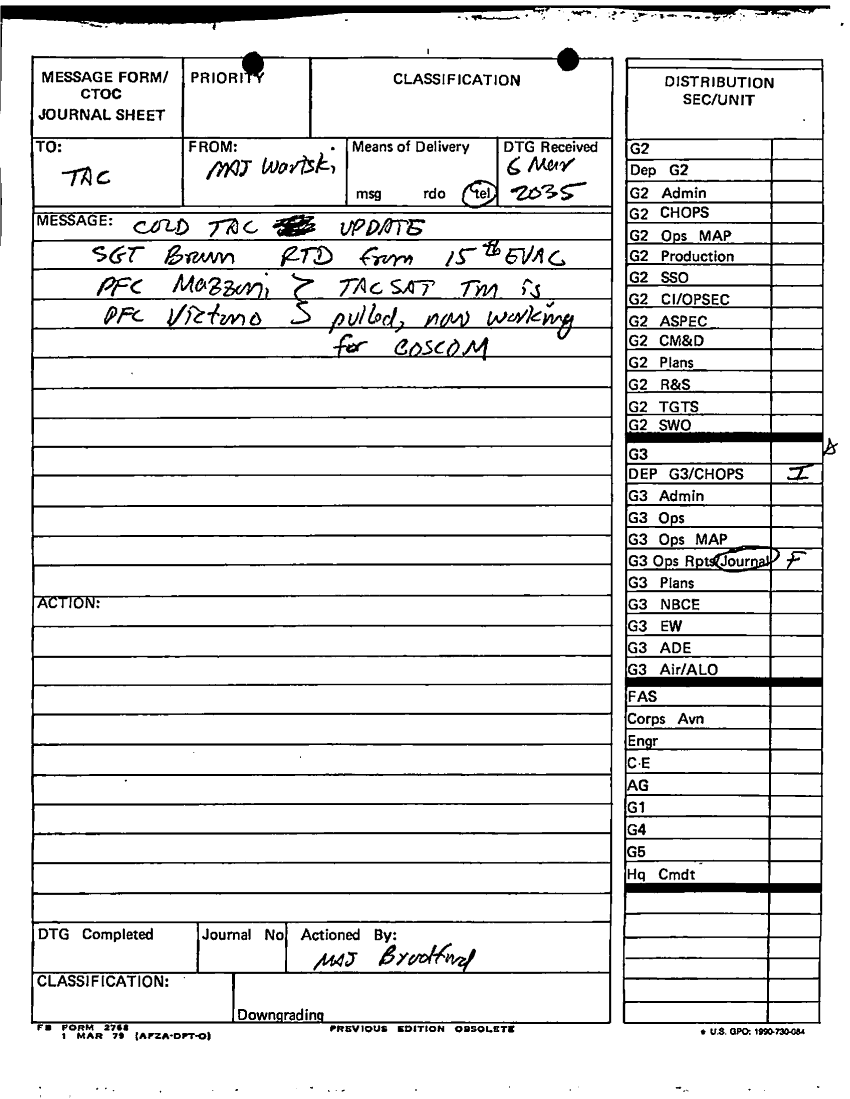 MESSAGE FORM/
CTOC
JOURNAL SHEET
PRIORITY
CLASSIFICATION
TO:
TAC
FROM:
MAJ
Means of Delivery
msg rdo tel
DTG Received
6 Mar
2035
MESSAGE: COLD TAC UPDATE
SGT Brown RTD from 15th EVAC
PFC Mazzoni } TACSAT TM is
PFC } pulled, now working
for COSCOM
ACTION:
DTG Completed
Journal No
Actioned By:
MAJ Bradford
CLASSIFICATION:
Downgrading
FB FORM 2768
1 MAR 79 (AFZA-DPT-O)
PREVIOUS EDITION OBSOLETE
DISTRIBUTION
SEC/UNIT
G2
Dep G2
G2 Admin
G2 CHOPS
G2 Ops MAP
G2 Production
G2 SSO
G2 CI/OPSEC
G2 ASPEC
G2 CM&D
G2 Plans
G2 R&S
G2 TGTS
G2 SWO
G3
DEP G3/CHOPS I
G3 Admin
G3 Ops
G3 Ops MAP
G3 Ops Rpts/Journal F
G3 Plans
G3 NBCE
G3 EW
G3 ADE
G3 Air/ALO
FAS
Corps Avn
Engr
C-E
AG
G1
G4
G5
Hq Cmdt
★ U.S. GPO: 1990-730-084